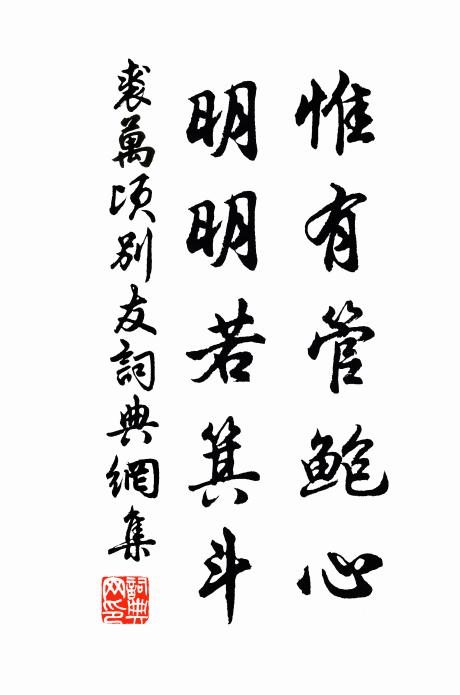 惟有管鲍心
明明若箕斗
裘萬頃别友詞典網集
詞典網印